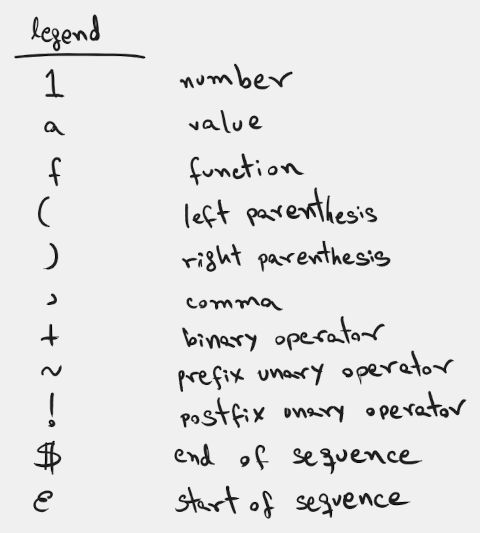 legend
1 number
a value
f function
( left parenthesis
) right parenthesis
, comma
+ binary operator
~ prefix unary operator
! postfix unary operator
$ end of sequence
ε start of sequence